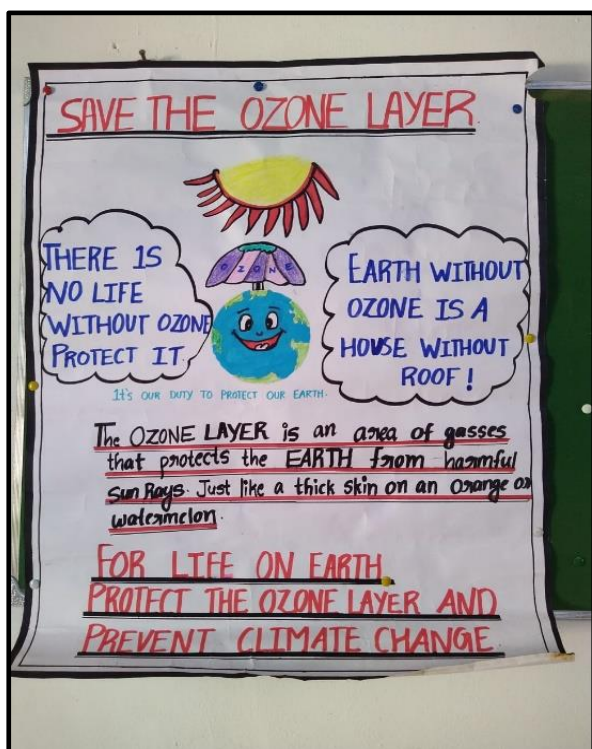 SAVE THE OZONE LAYER
OZONE
THERE IS
NO LIFE
WITHOUT OZONE
PROTECT IT
EARTH WITHOUT
OZONE IS A
HOUSE WITHOUT
ROOF!
It's OUR DUTY TO PROTECT OUR EARTH.
The OZONE LAYER is an area of gasses
that protects the EARTH from harmful
Sun Rays. Just like a thick skin on an orange or
watermelon.
FOR LIFE ON EARTH
PROTECT THE OZONE LAYER AND
PREVENT CLIMATE CHANGE.